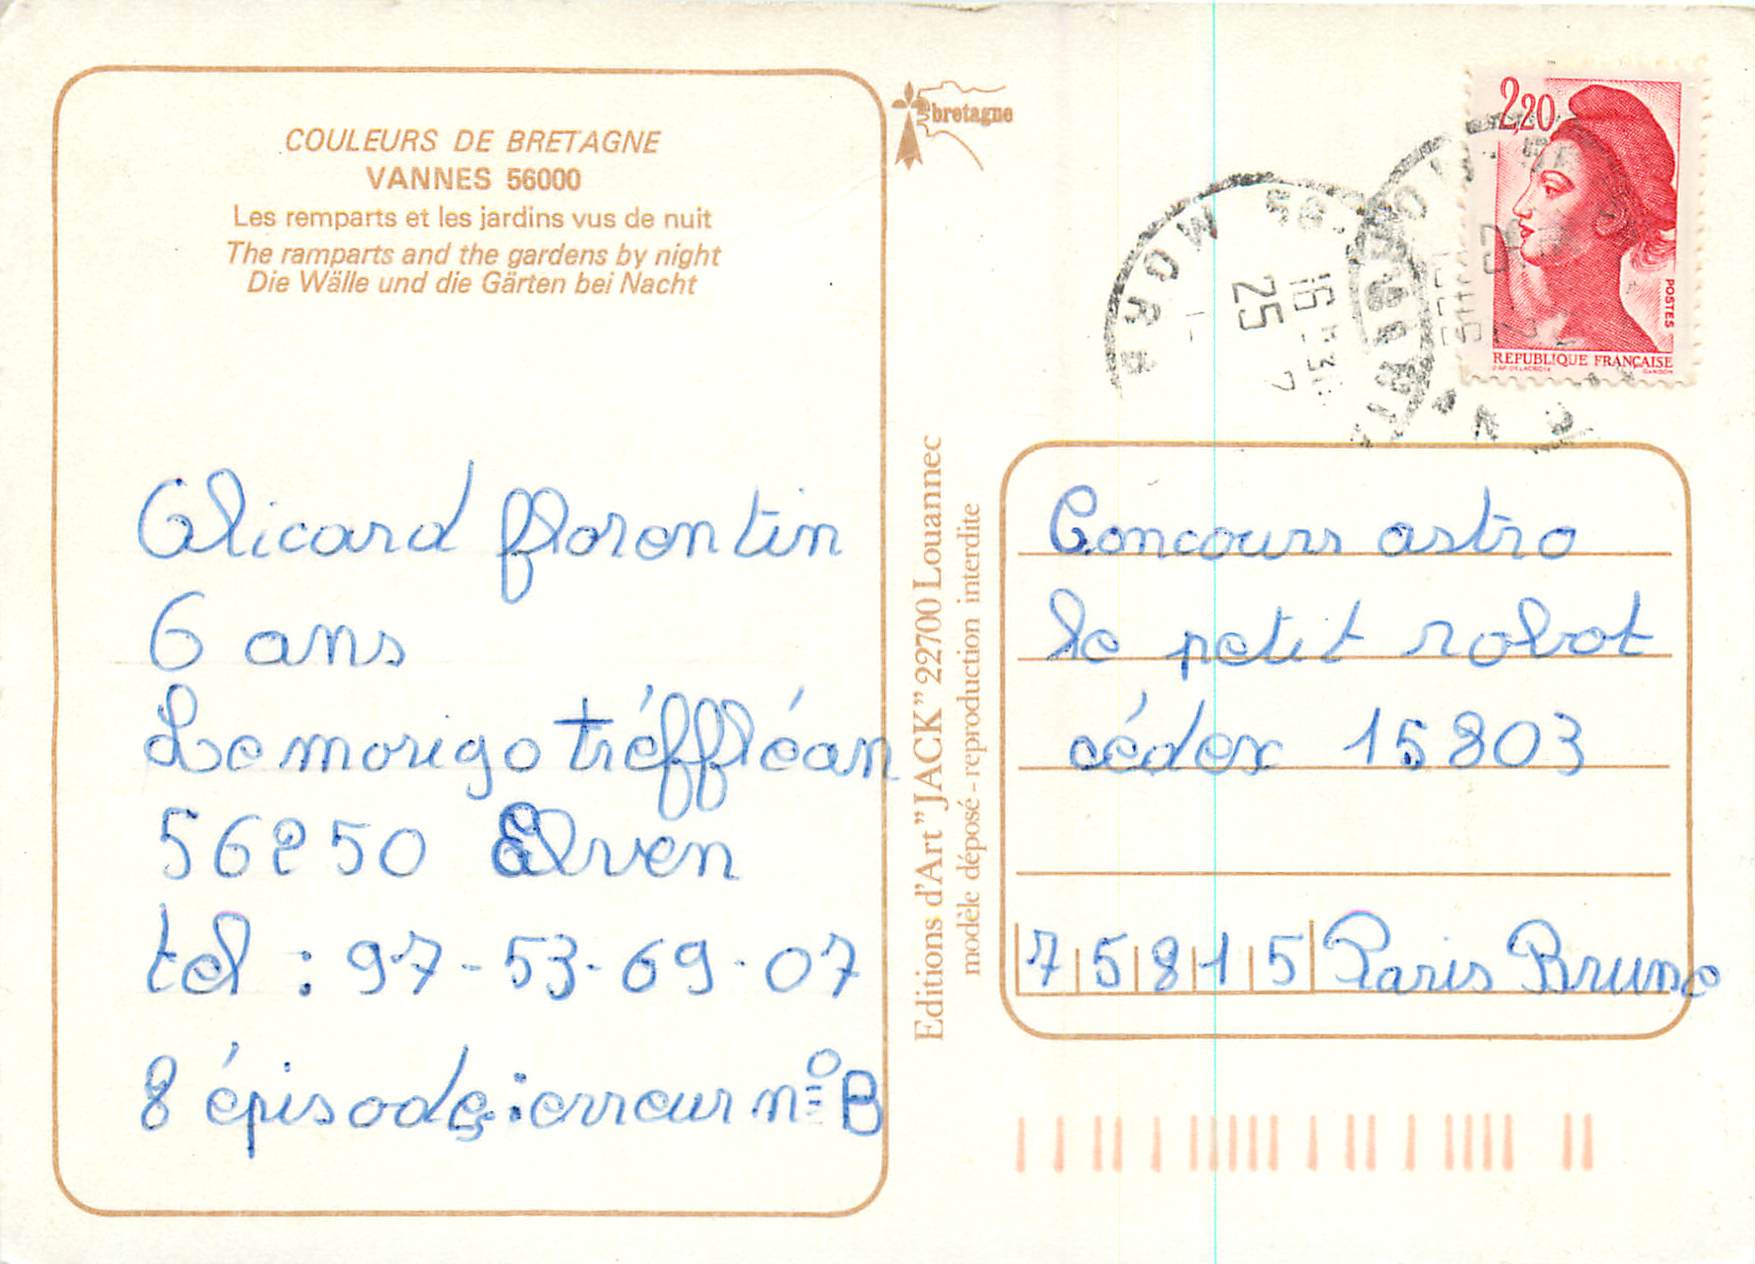 COULEURS DE BRETAGNE
VANNES 56000
Les remparts et les jardins vus de nuit
The ramparts and the gardens by night
Die Wälle und die Gärten bei Nacht
Glicard florentin
6 ans
Le morigo tréffléan
56250 Elven
tel : 97-53-69-07
8 épisode : erreur n° B
bretagne
Editions d'Art "JACK" 22700 Louannec
modèle déposé - reproduction interdite
2,20
POSTES
REPUBLIQUE FRANÇAISE
16 H 30
25
Concours astro
le petit robot
cédex 15803
75815 Paris Brune